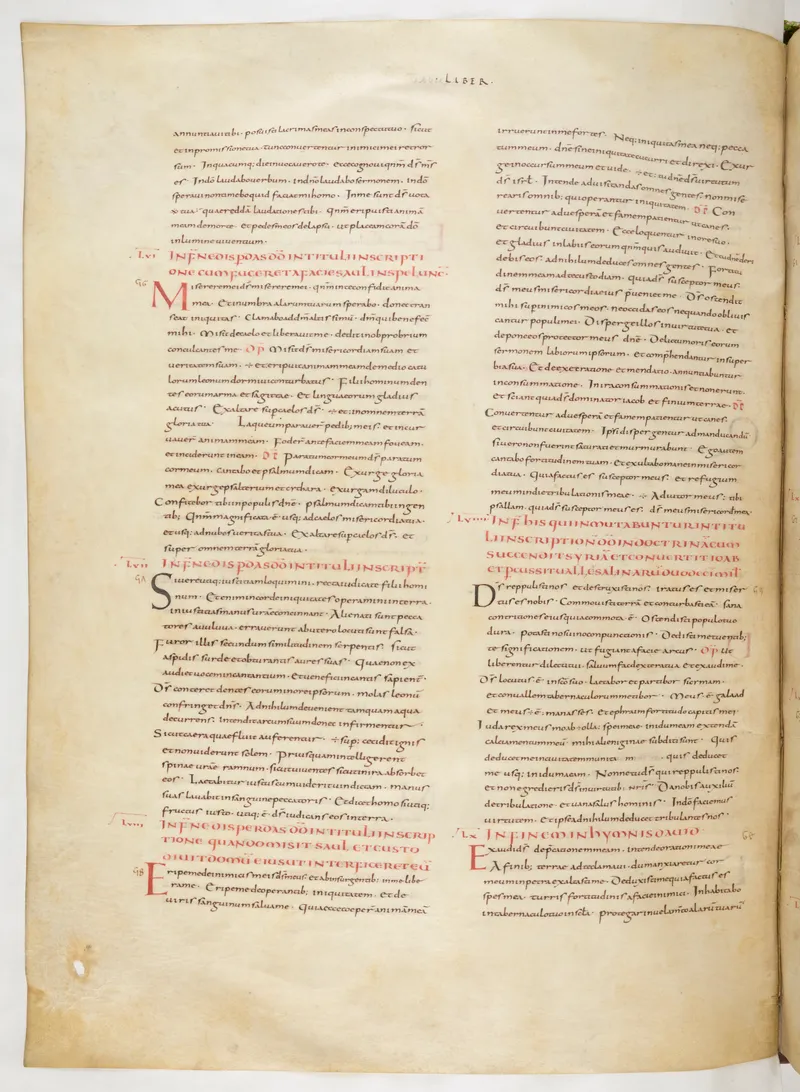 LIBER.
annuntiaui tibi · posuisti lacrimas meas in conspectu tuo · sicut
et in promissione tua · tunc conuertentur inimici mei retror
sum · In quacumq; die inuocauero te · ecce cognoui qnm ds ms
es · In dō laudabo uerbum · in dnō laudabo sermonem · in dō
speraui non timebo quid faciat mihi homo · In me sunt ds uota
tua · quae reddā laudationes tibi · Qnm eripuisti animā
meam de morte · et pedes meos de lapsu · ut placeam corā dō
in lumine uiuentium ·
LVI IN FINE NE DISPERDAS DD IN TITULI INSCRIPTI
ONE CUM FUGERET A FACIE SAUL IN SPELUNC
Miserere mei ds miserere mei · qnm in te confidit anima
mea · Et in umbra alarum tuarum sperabo · donec tran
seat iniquitas · Clamabo ad dm altissimū · dm qui benefec
mihi · Misit de caelo et liberauit me · dedit in obprobrium
conculcantes me · Misit ds misericordiam suam et
ueritatem suam · ÷ et eripuit animam meam de medio catu
lorum leonum dormiui conturbatus · Filii hominum den
tes eorum arma et sagittae · Et lingua eorum gladius
acutus · Exaltare sup caelos ds · ÷ et in omnem terrā
gloria tua · Laqueum parauer pedib; meis · et incur
uauer animam meam · Foder ante faciem meam foueam ·
et inciderunt in eam · Paratum cor meum ds paratum
cor meum · cantabo et psalmum dicam · Exurge gloria
mea exurge psalterium et cithara · exurgam diluculo ·
Confitebor tibi in populis dnē · psalmum dicam tibi in gen
tib; Qnm magnificata ē usq; ad caelos misericordia tua ·
et usq; ad nubes ueritas tua · Exaltare sup caelos ds · et
super omnem terrā gloria tua ·
LVII IN FINE NE DISPERDAS DD IN TITULI INSCRIPT
Si uere utiq; iustitiam loquimini · recta iudicate filii homi
num · Etenim in corde iniquitates operamini in terra ·
iniustitias manus urae concinnant · Alienati sunt pecca
tores a uulua · errauerunt ab utero locuti sunt falsa ·
Furor illis secundum similitudinem serpentis · sicut
aspidis surde et obturantis aures suas · Quae non ex
audiet uocem incantantium · et uenefici incantis sapienē ·
Ds conteret dentes eorum in ore ipsorum · molas leonū
confringet dns · Ad nihilum deuenient tamquam aqua
decurrens · Intendit arcum suum donec infirmentur
Sicut caera quae fluit auferentur · ÷ sup; cecidit ignis
et non uiderunt solem · Priusquam intellegerent
spinae urae ramnum · sicut uiuentes sic ut in ira absorbet
eos · Laetabitur iustus cum uiderit uindictam · manus
suas lauabit in sanguine peccatoris · Et dicet homo si utiq;
fructus iusto · utiq; ē ds iudicans eos in terra ·
LVIII IN FINE NE DISPERDAS DD IN TITULI INSCRIP
TIONE QUANDO MISIT SAUL ET CUSTO
DIUIT DOMŪ EIUS UT INTERFICERET EŪ
Eripe me de inimicis meis ds meus · et ab insurgentib; in me libe
ra me · Eripe me de operantib; iniquitatem · et de
uiris sanguinum salua me · Quia ecce ceper animā meā
irruerunt in me fortes · Neq; iniquitas mea neq; pecca
tum meum · dnē sine iniquitate cucurri et direxi · Exur
ge in occursum meum et uide · ÷ et tu dnē ds uirtutum
ds isrl · Intende ad uisitandas omnes gentes · non mise
rearis omnib; qui operantur iniquitatem · Con
uertentur ad uesperā et famem patientur ut canes ·
et circuibunt ciuitatem · Ecce loquentur in ore suo ·
et gladius in labiis eorum qnm quis audiuit · Et tu dnē deri
debis eos · ad nihilum deduces omnes gentes · Fortitu
dinem meam ad te custodiam · quia ds susceptor meus
ds meus misericordia eius pueniet me · Ds ostendit
mihi sup inimicos meos · ne occidas eos nequando obliuis
cantur populi mei · Disperge illos in uirtute tua · et
depone eos protector meus dnē · Delicta oris eorum
sermonem labiorum ipsorum · et comphendantur in super
bia sua · Et de exsecratione et mendacio adnuntiabuntur
in consummatione · In ira consummationis et non erunt ·
et scient quia ds dominator iacob et finium terrae ·
Conuertentur ad uesperā et famem patientur ut canes ·
et circuibunt ciuitatem · Ipsi dispergentur ad manducandū
si uero non fuerint saturati et murmurabunt · Ego autem
cantabo fortitudinem tuam · et exultabo mane misericor
diā tuā · Quia factus es susceptor meus · et refugium
meum in die tribulationis meae · ÷ Adiutor meus · tibi
psallam · quia ds susceptor meus es · ds meus misericordia mea
LVIIII IN FINE HIS QUI INMUTABUNTUR IN TITU
LI INSCRIPTION DD IN DOCTRINĀ CUM
SUCCENDIT SYRIĀ ET CONUERTIT IOAB
ET PCUSSIT UALLĒ SALINARŪ DUODECĪ MIL
Ds reppulisti nos et destruxisti nos · iratus es et miser
tus es nobis · Commouisti terrā et conturbasti eā · sana
contritiones eius quia commota ē · Ostendisti populo tuo
dura · potasti nos uino conpunctionis · Dedisti metuentib;
te significationem · ut fugiant a facie arcus · Ut
liberentur dilecti tui · saluum fac dextera tua et exaudi me ·
Ds locutus ē in scō suo · laetabor et partibor sicimam ·
et conuallem tabernaculorum metibor · Meus ē galaad
et meus ē manasses · et ephraim fortitudo capitis mei ·
Iuda rex meus moab olla spei meae · in idumeam extendā
calciamentum meū mihi alienigenae subditi sunt · Quis
deducet me in ciuitatem munita · quis deducet
me usq; in idumeam · Nonne tu ds qui reppulisti nos ·
et non egredieris ds in uirtutib; nris · Da nobis auxiliū
de tribulatione · et uana salus hominis · In dō faciemus
uirtutem · et ipse ad nihilum deducet tribulantes nos ·
LX IN FINEM IN HYMNIS DAUID
Exaudi ds depcationem meam · Intende orationi meae
A finib; terrae ad te clamaui · dum anxiaretur cor
meum in petra exaltasti me · Deduxisti me quia factus es
spes mea · turris fortitudinis a facie inimici · Inhabitabo
in tabernaculo tuo in scla · protegar in uelamēto alarū tuarū